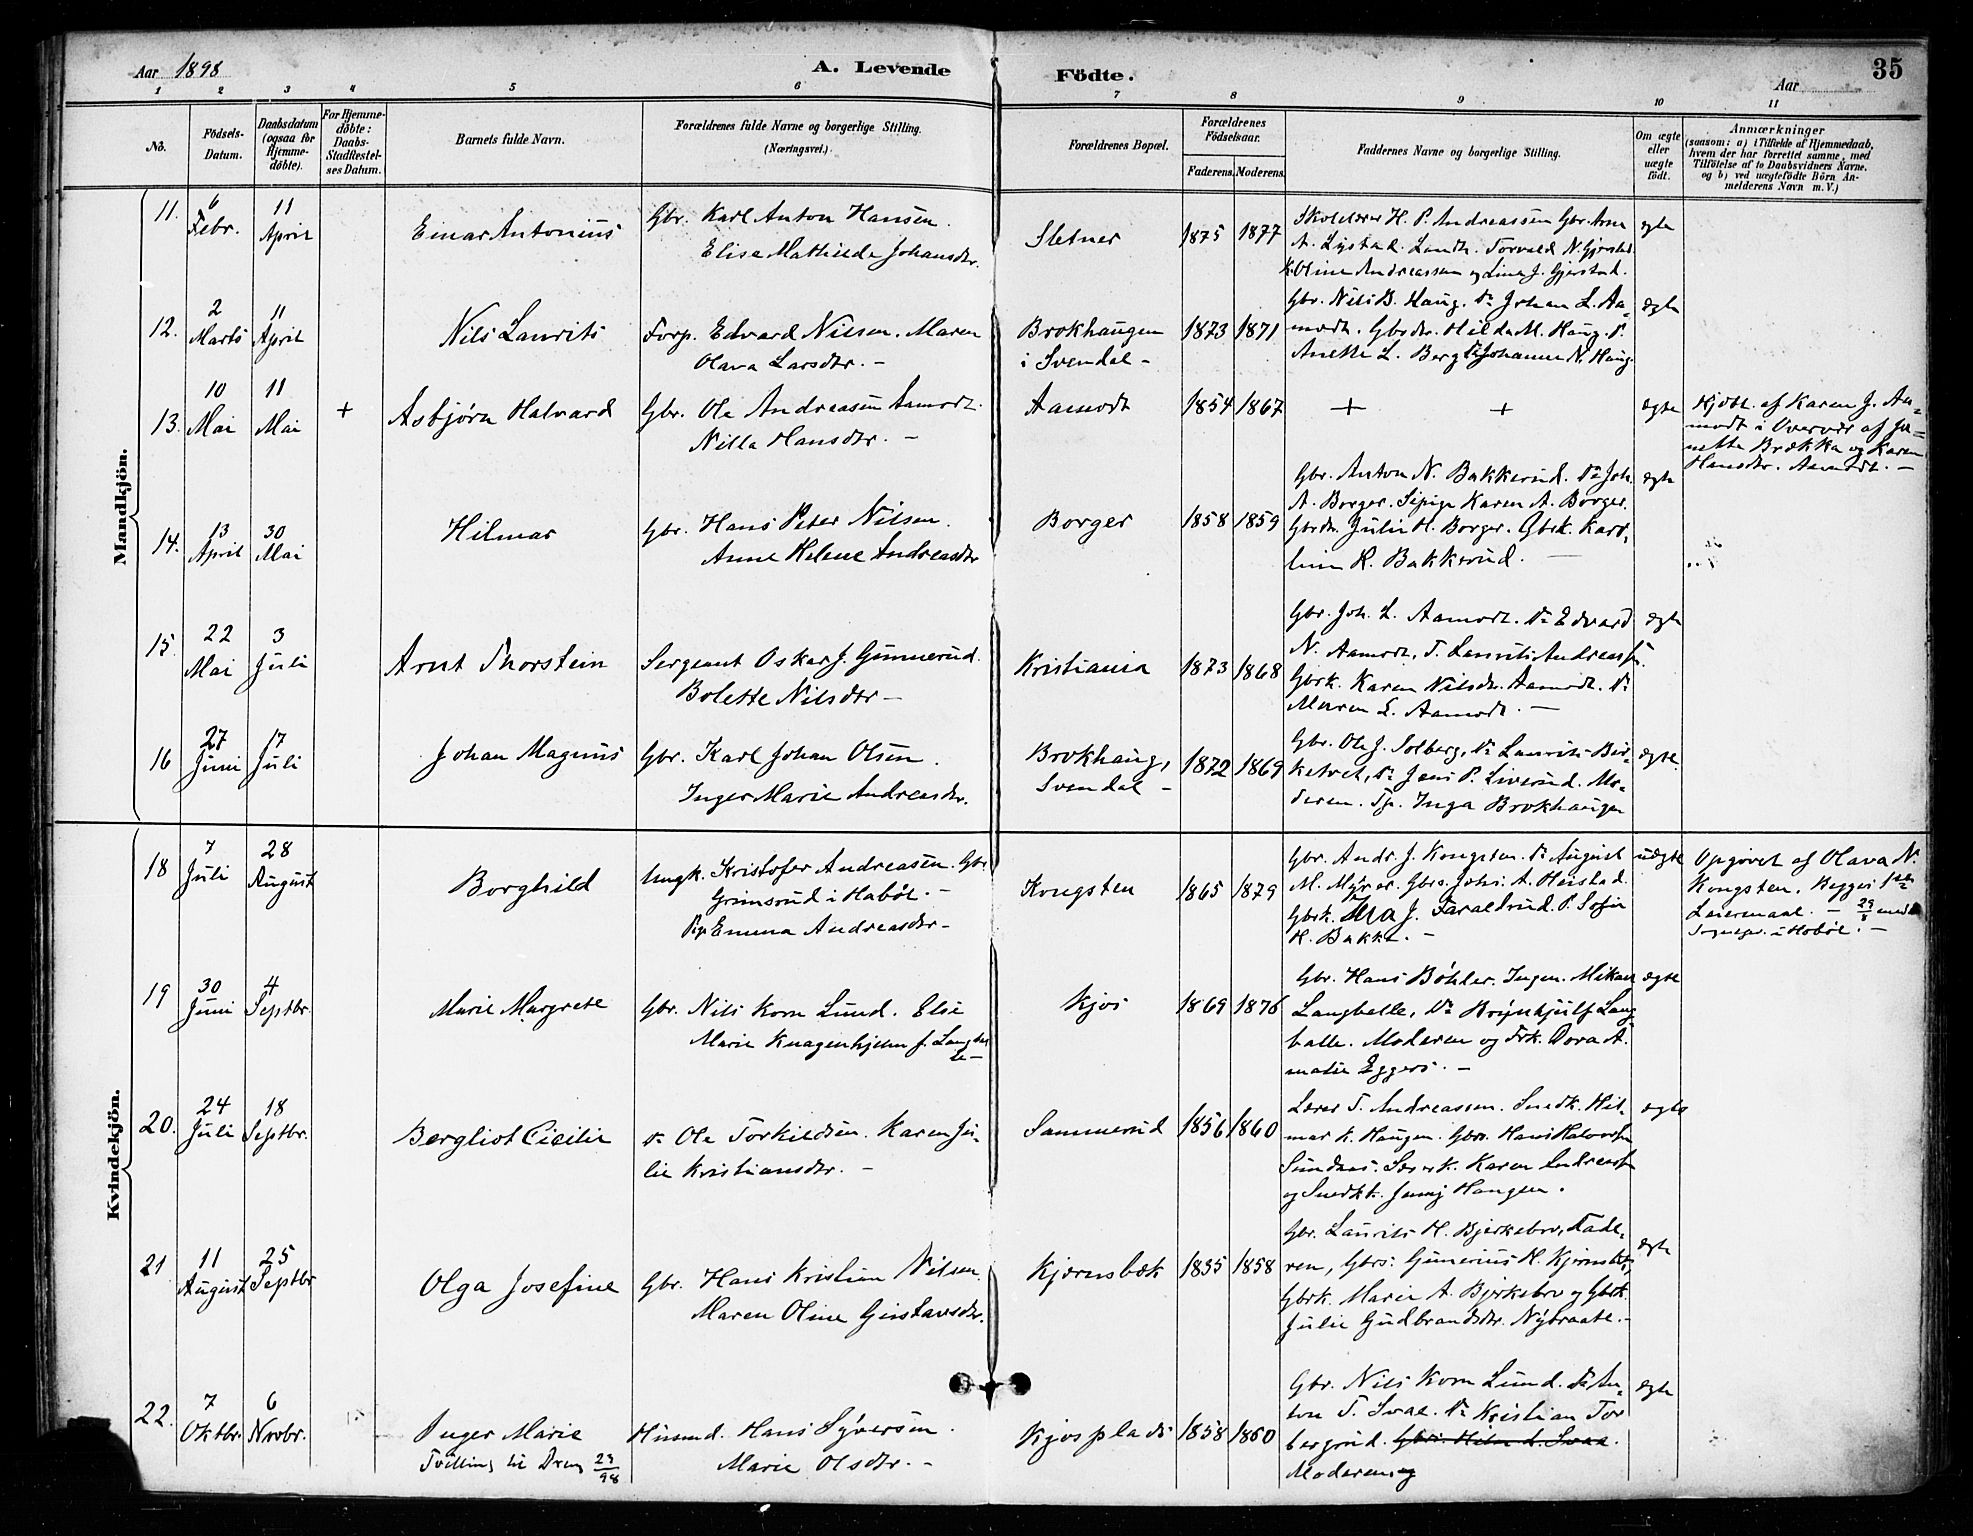 Aar 1898
A. Levende Födte.
Aar
35
1 2 3 4 5 6 7 8 9 10 11
No.
Födsels-
Datum.
Daabsdatum
(ogsaa for
Hjemme-
döbte).
For Hjemme-
döbte:
Daabs-
Stadfestel-
ses Datum.
Barnets fulde Navn.
Forældrenes fulde Navne og borgerlige Stilling.
(Næringsvei.)
Forældrenes Bopæl.
Forældrenes
Födselsaar.
Faderens. Moderens.
Faddernes Navne og borgerlige Stilling.
Om ægte
eller
uægte
födt.
Anmærkninger
(saasom: a) i Tilfælde af Hjemmedaab,
hvem der har forrettet samme, med
Tilföielse af to Daabsvidners Navne,
og b) ved uægtefödte Börn An-
melderens Navn m. V.)
Mandkjön.
11.
6
Febr.
11
April
Einar Antonius
Gbr. Karl Anton Hansen.
Elise Mathilde Johansdtr.
Sletner
1875 1877
Skolelærer H. P. Andreassen Gbr. Arne
A. Lystad. Landh. Torvald N. Gjerstad.
K. Oline Andreassen og Lina J. Gjerstad.
ægte
12.
2
Marts
11
April
Nils Laurits
Forp. Edvard Nilsen. Maren
Olava Larsdtr. -
Brokhaugen
i Svendal -
1873 1871
Gbr. Nils B. Haug. Do Johan L. Aa-
modt. Gbrdtr. Hilda M. Haug. P.
Anette L. Berg Do Johanne N. Haug.
ægte
13.
10
Mai
11
Mai
+
Asbjörn Halvard
Gbr. Ole Andreasen Aamodt.
Nilla Hansdtr. -
Aamodt
1854 1867
+ +
ægte
Hjdbt. af Karen J. Aa-
modt i Overvær af Ja-
nette Brækka og Karen
Hansdtr. Aamodt. -
14.
13
April
30
Mai
Hilmar
Gbr. Hans Peter Nilsen.
Anne Helene Andreasdtr
Borger
1858 1859
Gbr. Anton N. Bakkerud. Do Joh.
A. Borger. Sypige Karen A. Borger.
Gbrdtr. Julie H. Borger. Gbrk. Karo-
line K. Bakkerud. -
ægte
15.
22
Mai
3
Juli
Arnt Thorstein
Sergeant Oskar J. Gunnerud.
Bolette Nilsdtr -
Kristiania
1873 1868
Gbr. Joh. L. Aamodt. Do Edvard
N. Aamodt. T. Laurits Andreassen.
Gbrk. Karen Nilsdtr. Aamodt. Do
Maren L. Aamodt. -
ægte
16
27
Juni
17
Juli
Johan Magnus
Gbr. Karl Johan Olsen.
Inger Marie Andreasdtr.
Brokhaug,
Svendal -
1872 1869
Gbr. Ole J. Solberg, Do Laurits Bir-
ketvet, Do Jens P. Liverud. Mo-
deren. Tp. Inga Brokhaugen
ægte.
Kvindekjön.
18
7
Juli
28
August
Borghild
Ungk. Kristofer Andreasen. Gbr.
Grimsrud i Haböl. -
Pige Emma Andreasdtr -
Kongsten
1865 1879
Gbr. Andr. J. Kongsten. Do August
M. Myrer. Gbrs. Johs. A. Heistad.
Gbrk. Ma J. Taraldrud. P. Sofie
H. Bakke. -
uægte
Opgivet af Olava N.
Kongsten. Begges 1ste
Leiermaal. - 29/8 med
Sognepr. i Haböl. -
19
30
Juni
4
Septbr.
Marie Margrete
Gbr. Nils Korn Lund. Else
Marie Knagenhjelm f. Langbal
le -
Kjos
1869 1876
Gbr. Hans Böhler. Ingen. Mikael
Langballe, Do Brynhjulf Lang
balle. Moderen og Frk. Dora A.
matie Eggers. -
ægte
20.
24
Juli
18
Septbr.
Bergliot Cicilie
Do Ole Torkildsen. Karen Ju-
lie Kristiansdtr. -
Sammerud
1856 1860
Lærer T. Andreassen. Snedk. Hil-
mar K. Haugen. Gbrs. Hans Halvorsen
Sundaas. Lærerk. Karen Andreassen
og Snedkk. Jenny Haugen.
ægte
21
11
August
25
Septbr
Olga Josefine
Gbr. Hans Kristian Nilsen.
Maren Oline Gustavsdtr.
Kjærnsbæk
1855 1858
Gbr. Laurits H. Bjerkebro, Fade-
ren, Gbrs: Gunerius H. Kjernsbæk,
Gbrk. Marie A. Bjerkebro og Gbrk.
Julie Gudbrandsdtr. Nybraate. -
ægte
22.
7
Oktbr.
6
Novbr.
Inger Marie
Tvilling til Dreng 29/98
Husmd. Hans Syversen.
Marie Olsdtr. -
Kjosplads
1858 1860
Gbr. Nils Korn Lund. Do An-
ton T. Svae. Do Kristian Tor
bergrud. Gbrs. Hilm d. Svae.
Moderen og
ægte